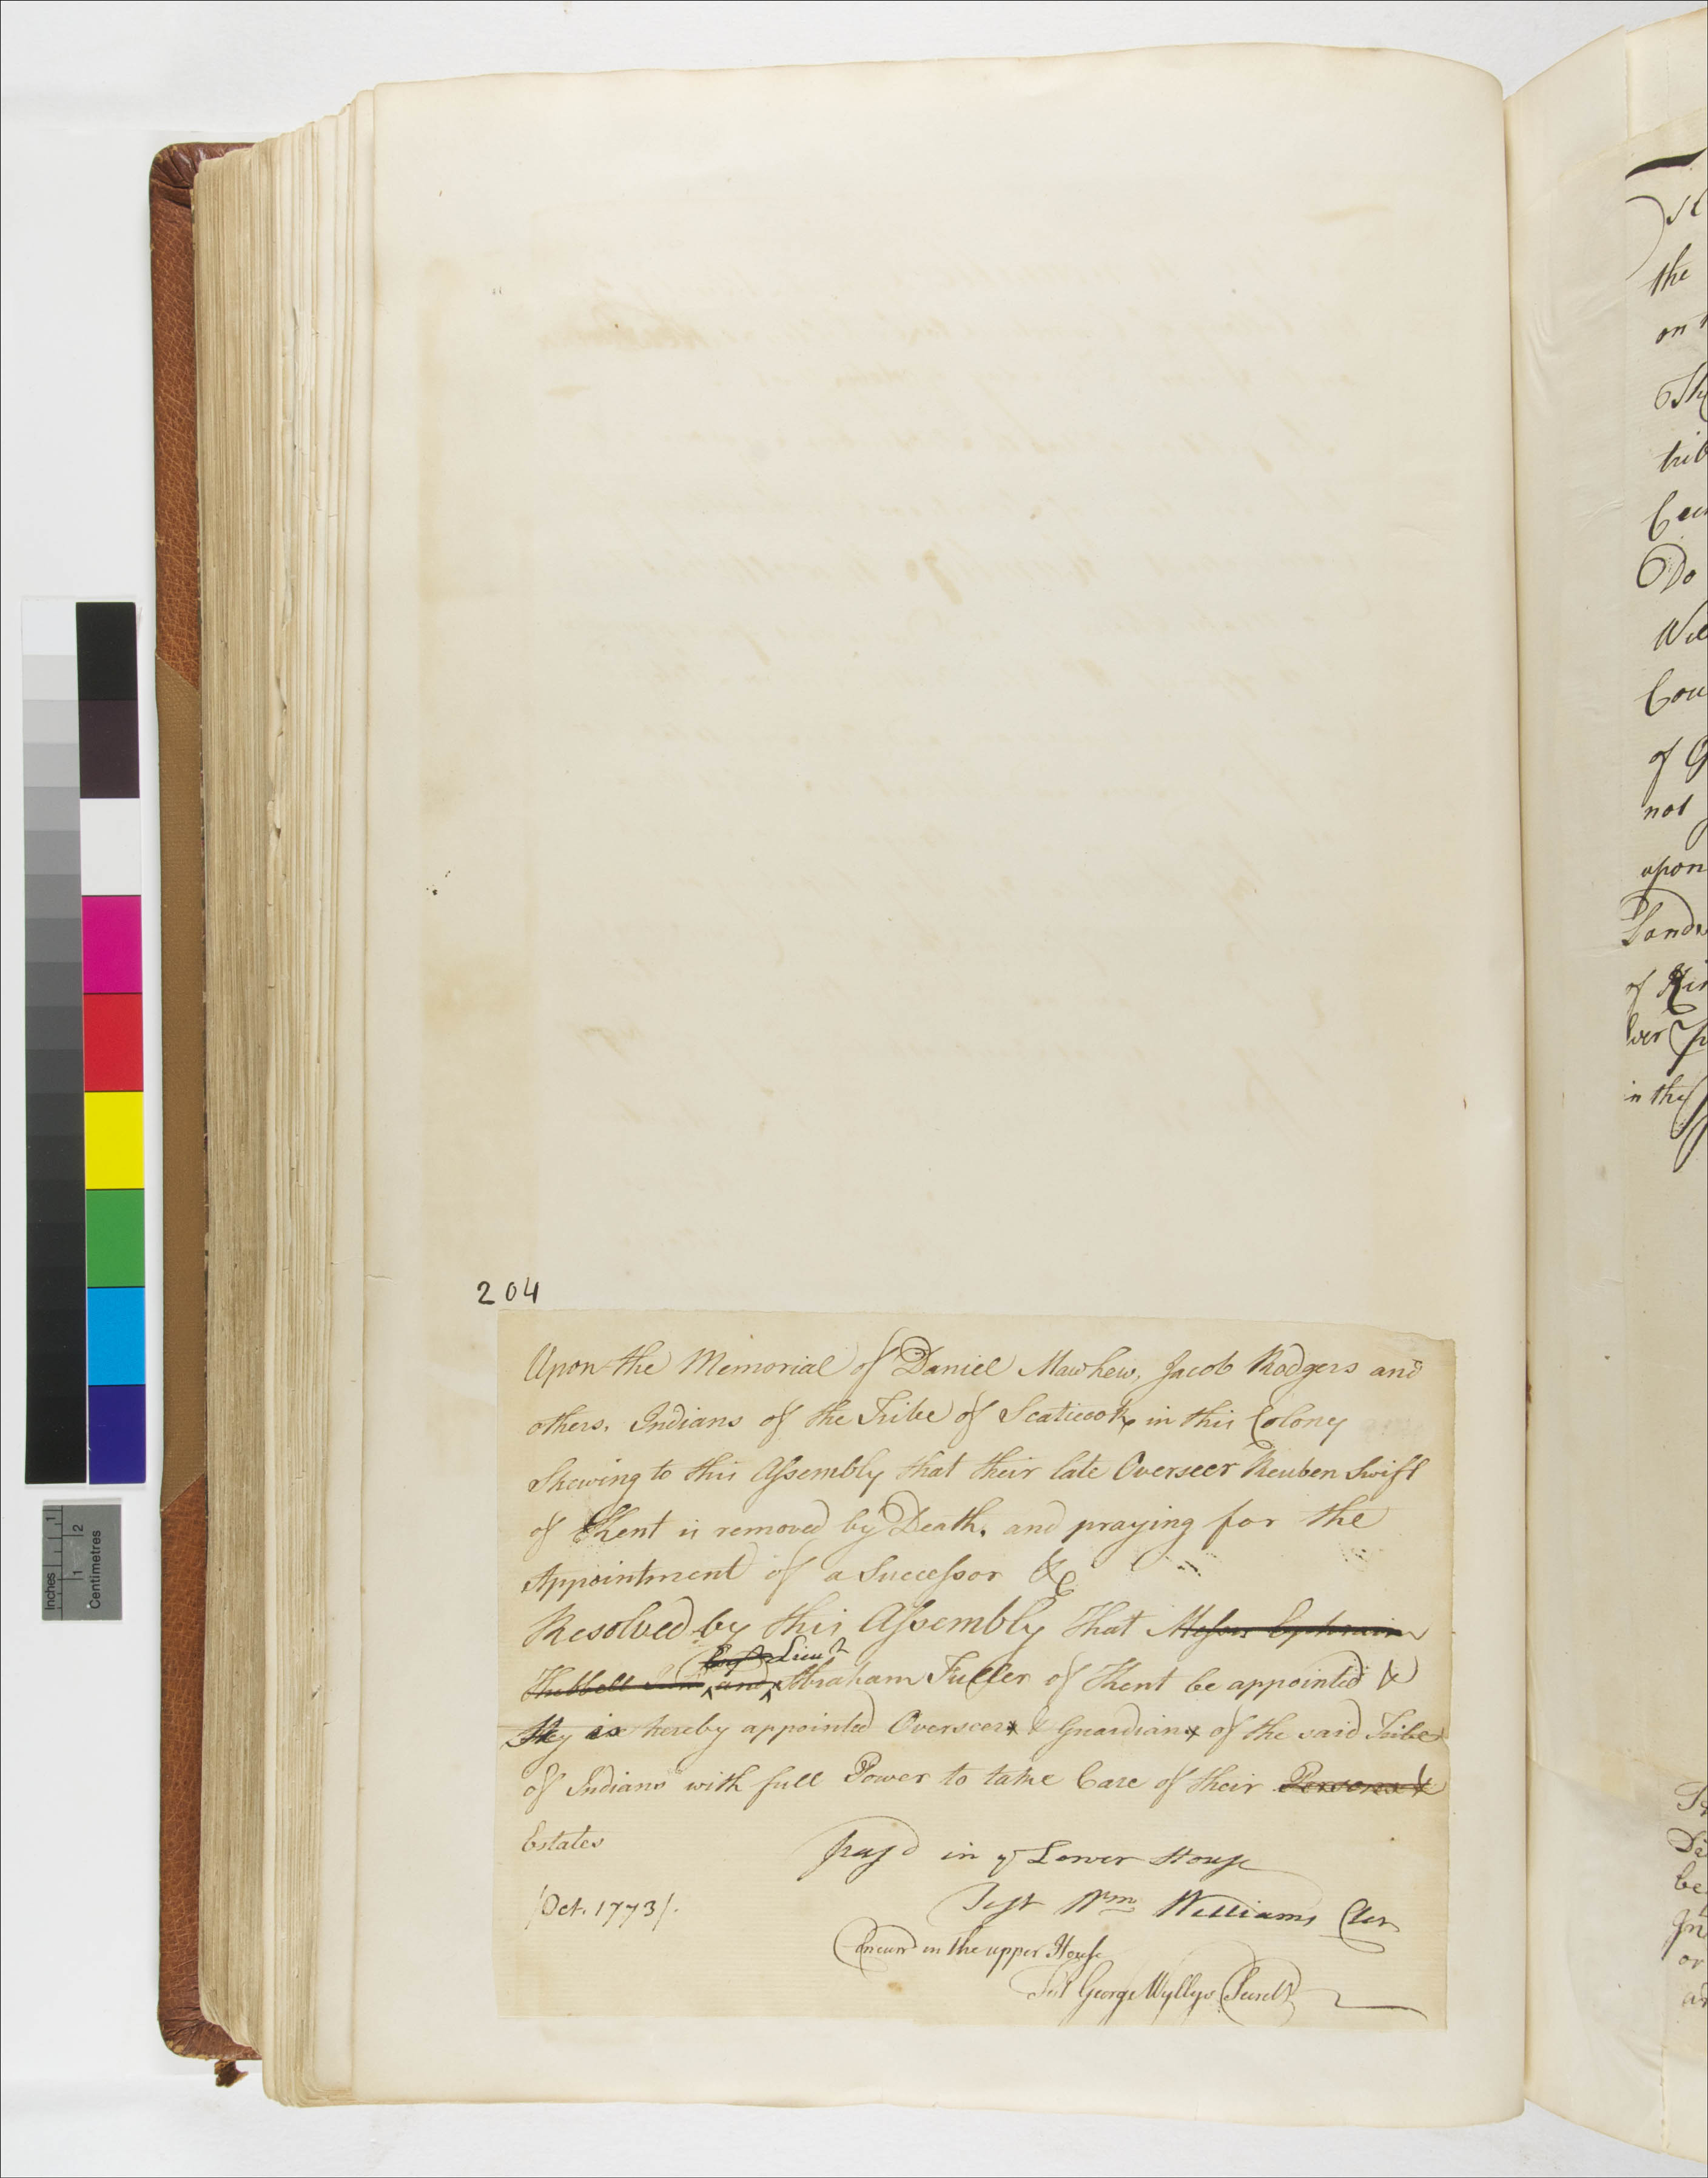 204
Upon the Memorial of Daniel Mawhew, Jacob Rodgers and
others, Indians of the Tribe of Scaticook in this Colony
Shewing to this Assembly that their late Overseer Reuben Swift
of Kent is removed by Death, and praying for the
Appointment of a Successor &c
Resolved by this Assembly That Messrs Ephraim
Lieut
Hubbell and Abraham Fuller of Kent be appointed &
is hereby appointed Overseer & Guardian of the said Tribe
of Indians with full Power to take Care of their Persons &
Estates
Pass'd in ye Lower House
Test Wm Williams Cler
/Oct. 1773/.
Concurrd in the upper House
Test George Wyllys Secrety
the
on
of
not
upon
of
in the
Inches
Centimetres
1
1
2